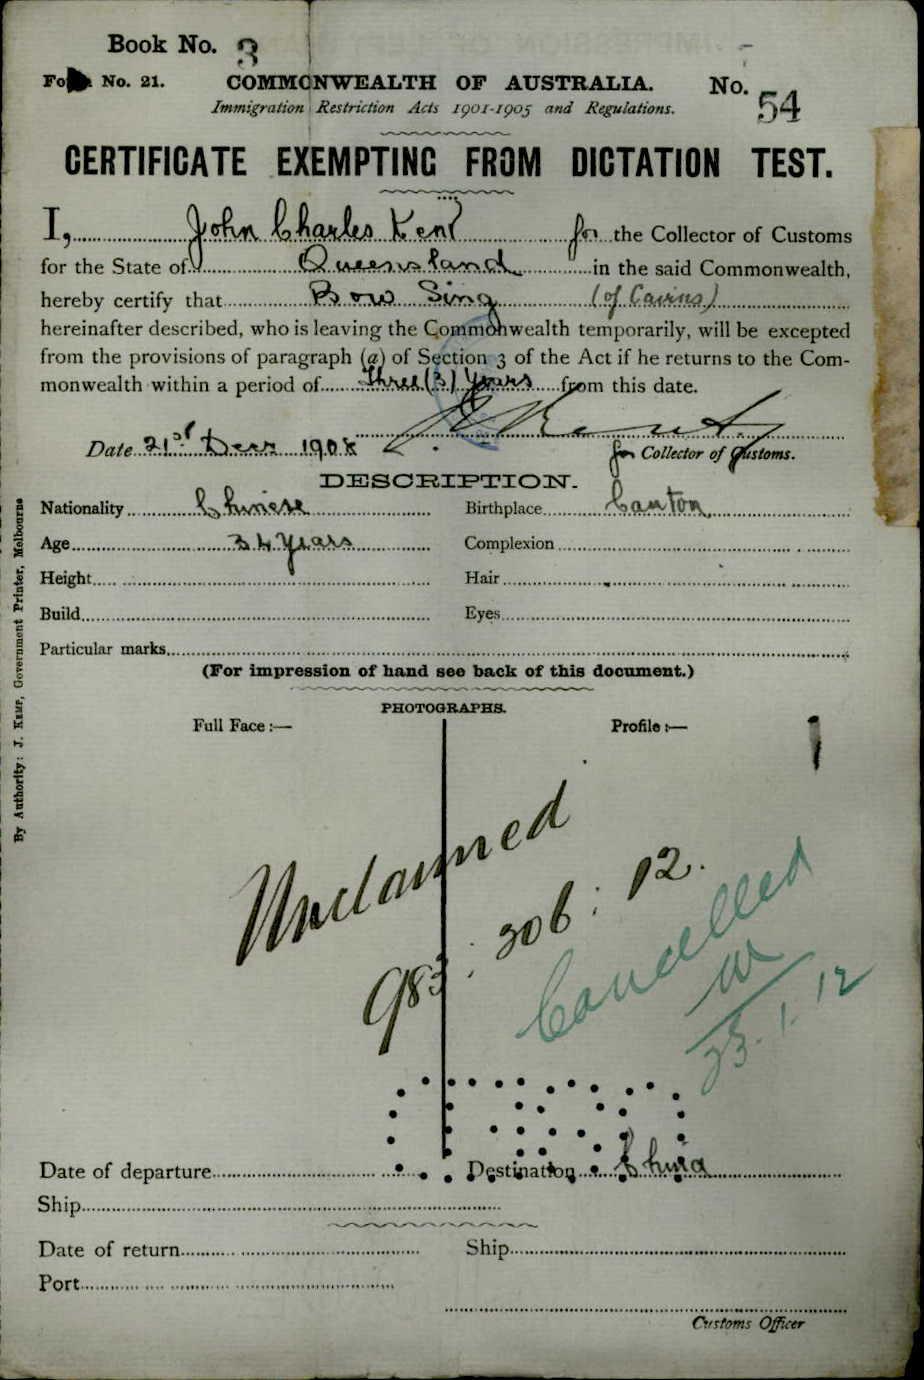 Book No. 3
Form No. 21.
COMMONWEALTH OF AUSTRALIA.
No. 54
Immigration Restriction Acts 1901-1905 and Regulations.
CERTIFICATE EXEMPTING FROM DICTATION TEST.
I, John Charles Kent for the Collector of Customs
for the State of Queensland in the said Commonwealth,
hereby certify that Bow Sing (of Cairns)
hereinafter described, who is leaving the Commonwealth temporarily, will be excepted
from the provisions of paragraph (a) of Section 3 of the Act if he returns to the Com-
monwealth within a period of Three (3) Years from this date.
Date 21st Decr 1908
for Collector of Customs.
DESCRIPTION.
Nationality Chinese Birthplace Canton
Age 34 Years Complexion
Height Hair
Build Eyes
Particular marks
(For impression of hand see back of this document.)
PHOTOGRAPHS.
Full Face :— Profile :—
Unclaimed
983 : 306 : 12.
Cancelled
23.1.12
Date of departure Destination China
Ship
Date of return Ship
Port
Customs Officer
By Authority: J. Kemp, Government Printer, Melbourne